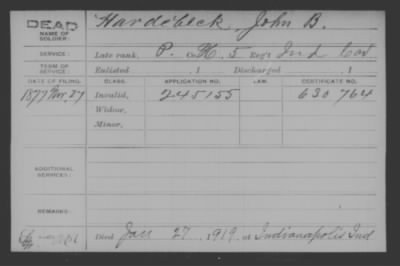 DEAD Hardebeck, John B.
NAME OF SOLDIER:
SERVICE: Late rank, P. Co. M, 5 Reg't Ind Cav
TERM OF SERVICE: Enlisted , 1 Discharged , 1
DATE OF FILING. CLASS. APPLICATION NO. LAW. CERTIFICATE NO.
1877 Nov, 27 Invalid, 245155 630 764
Widow,
Minor,
ADDITIONAL SERVICES:
REMARKS:
Died Jan 27, 1919, at Indianapolis Ind